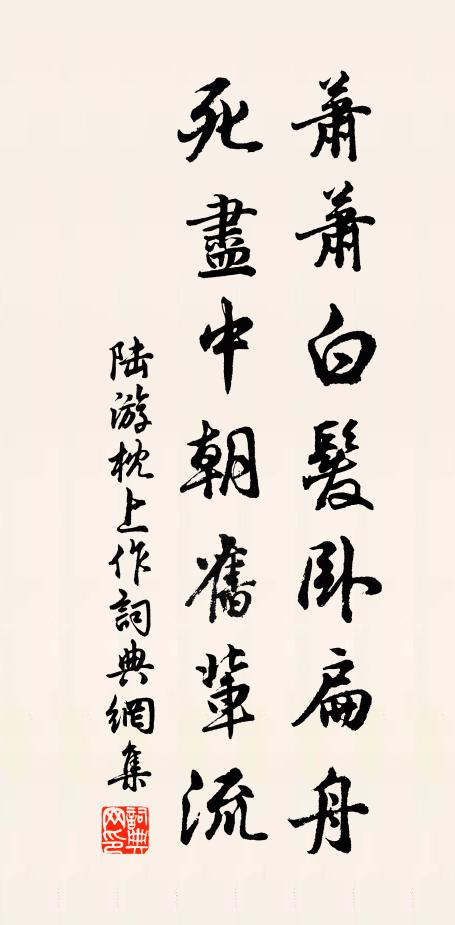 蕭蕭白髮臥扁舟
死盡中朝舊輩流
陸游枕上作詞典網集
詞典网印